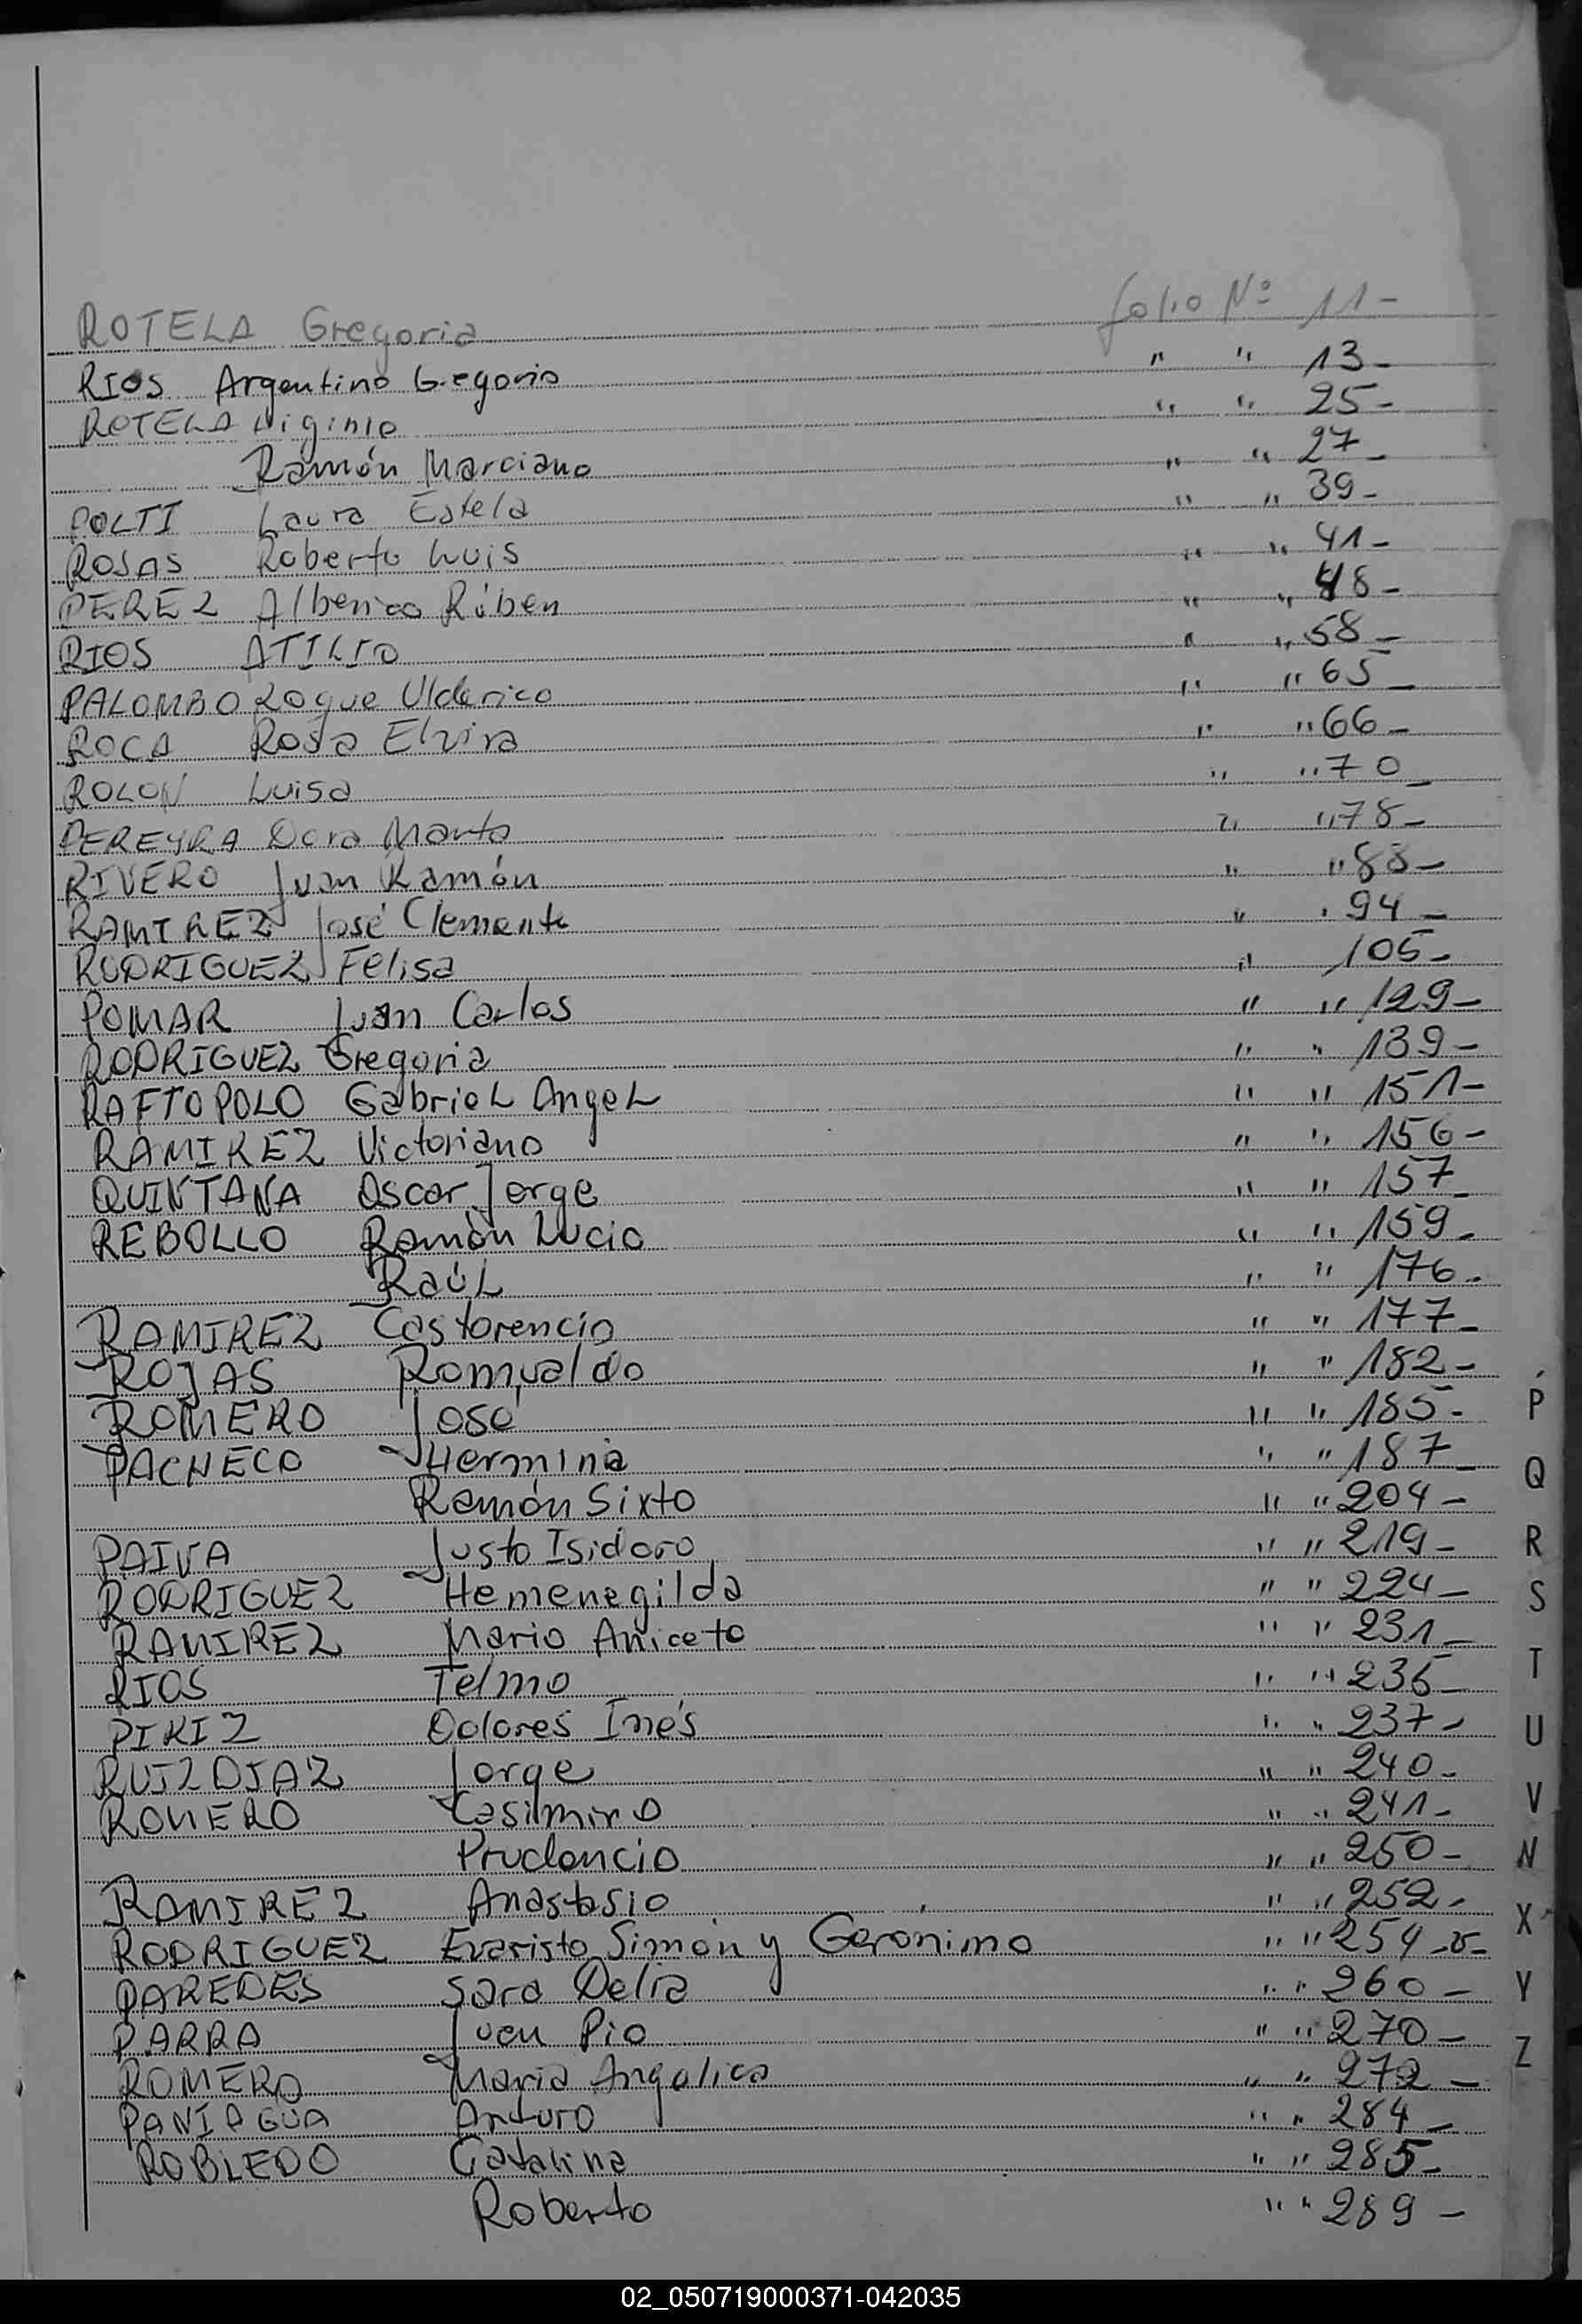 ROTELA Gregoria folio Nº 11-
RIOS Argentino Gregorio " " 13-
ROTELA Higinio " " 25-
Ramón Marciano " " 27-
POLTI Laura Estela " " 39-
ROJAS Roberto Luis " " 41-
PEREZ Alberico Rúben " " 48-
RIOS ATILIO " " 58-
PALOMBO Roque Ulderico " " 65-
ROCA Rosa Elvira " " 66-
ROLON Luisa " " 70-
PEREYRA Dora Marta " " 78-
RIVERO Juan Ramón " " 88-
RAMIREZ José Clemente " " 94-
RODRIGUEZ Felisa " 105-
POMAR Juan Carlos " " 129-
RODRIGUEZ Gregoria " " 139-
RAFTOPOLO Gabriel Angel " " 151-
RAMIREZ Victoriano " " 156-
QUINTANA Oscar Jorge " " 157-
REBOLLO Ramón Lucio " " 159-
RaúL " " 176-
RAMIREZ Castorencio " " 177-
ROJAS Romualdo " " 182-
ROMERO José " " 185-
PACHECO Hermina " " 187-
Ramón Sixto " " 204-
PAIVA Justo Isidoro " " 219-
RODRIGUEZ Hemenegilda " " 224-
RAMIREZ Mario Aniceto " " 231-
RIOS Telmo " " 235-
PIRIZ Dolores Inés " " 237-
RUIZ DIAZ Jorge " " 240-
ROMERO Casimiro " " 241-
Prudencio " " 250-
RAMIREZ Anastasio " " 252-
RODRIGUEZ Evaristo Simón y Gerónimo " " 254-v-
PAREDES Sara Delia " " 260-
PARRA Juan Pio " " 270-
ROMERO Maria Angelica " " 272-
PANIAGUA Arturo " " 284-
ROBLEDO Catalina " " 285-
Roberto " " 289-
P
Q
R
S
T
U
V
N
X
Y
Z
02_050719000371-042035